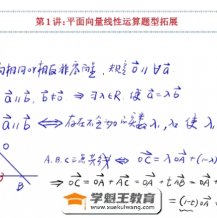 第1讲:平面向量线性运算题型拓展
方向相同or相反非零向量, 规定 0⃗ ∥ ∀a⃗.
a⃗∥b⃗, b⃗≠0⃗ ⇒ ∃λ∈R, 使 a⃗=λb⃗
a⃗∥b⃗ ⇔ 存在不全为0实数λ, λ, 使λ
A.B.C三点共线 ⇔ OC⃗ = λOA⃗ + (1-λ)
B
⇒ OC⃗ = OA⃗ + AC⃗ = OA⃗ + tAB⃗ = OA⃗
= (1-t)OA⃗
学魁王教育
www.xuekuiwang.com